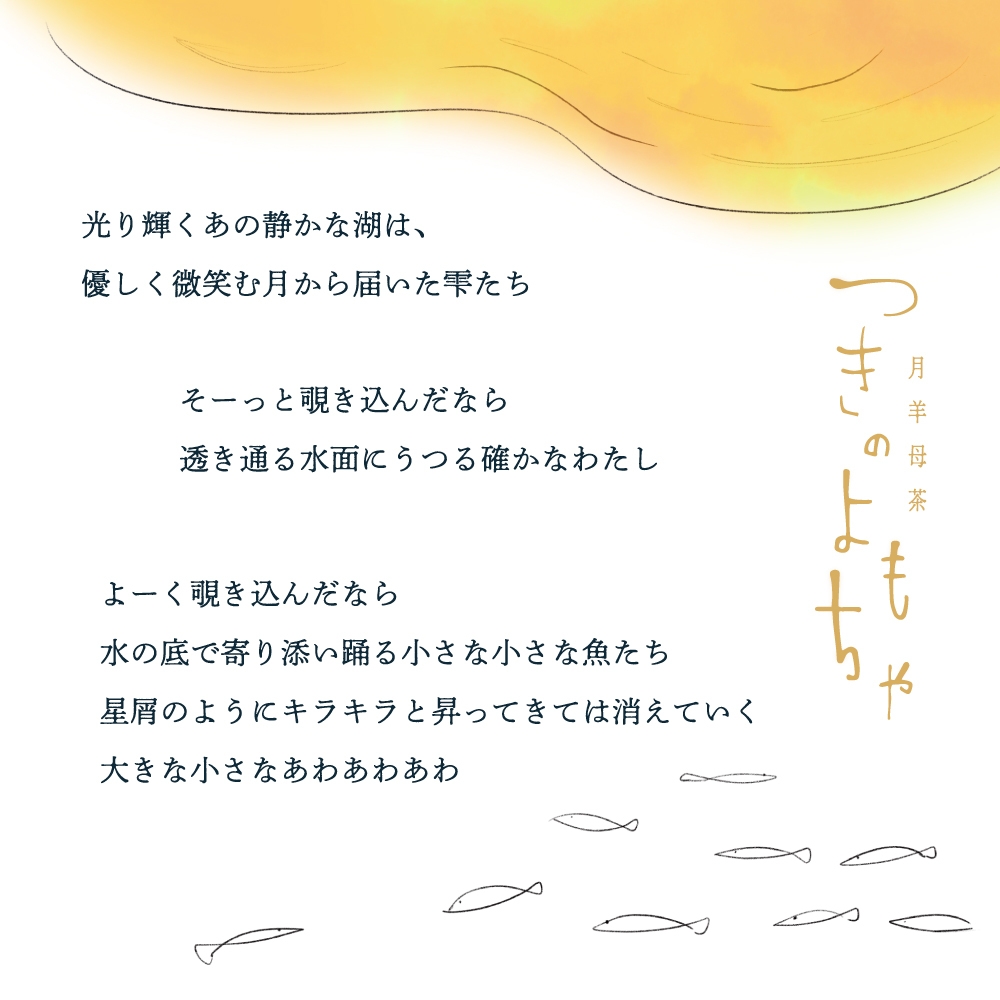 光り輝くあの静かな湖は、
優しく微笑む月から届いた雫たち
そーっと覗き込んだなら
透き通る水面にうつる確かなわたし
よーく覗き込んだなら
水の底で寄り添い踊る小さな小さな魚たち
星屑のようにキラキラと昇ってきては消えていく
大きな小さなあわあわあわ
月羊母茶
つきのよもちゃ